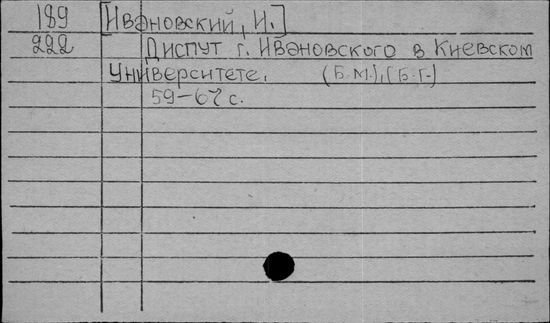 189 [Ивановский, И.]
222 Диспут г. Ивановского в Киевском
Университете. (Б.М.), (Б.Г.)
59-67 с.